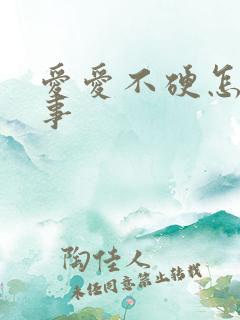 爱爱不硬怎
事
陶佳人
未经同意禁止转载